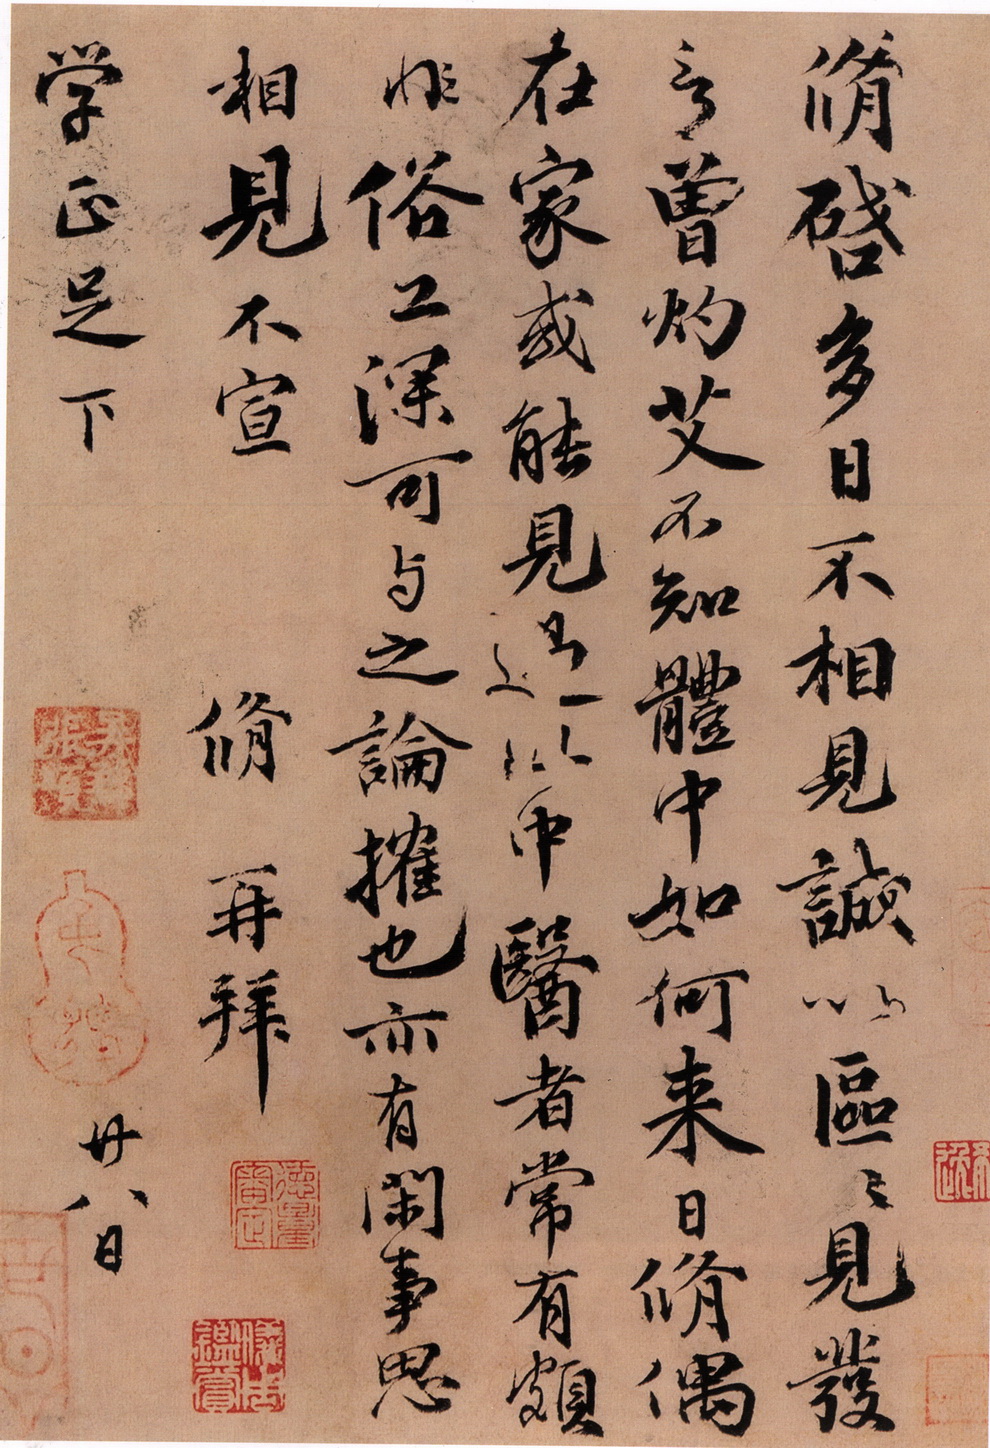 脩啓多日不相見誠以區〻見發
言曾灼艾不知體中如何来日脩偶
在家或能見過以中醫者常有頗
非俗工深可与之論搉也亦有閑事思
相見不宣 脩 再拜
学正足下 廿八日